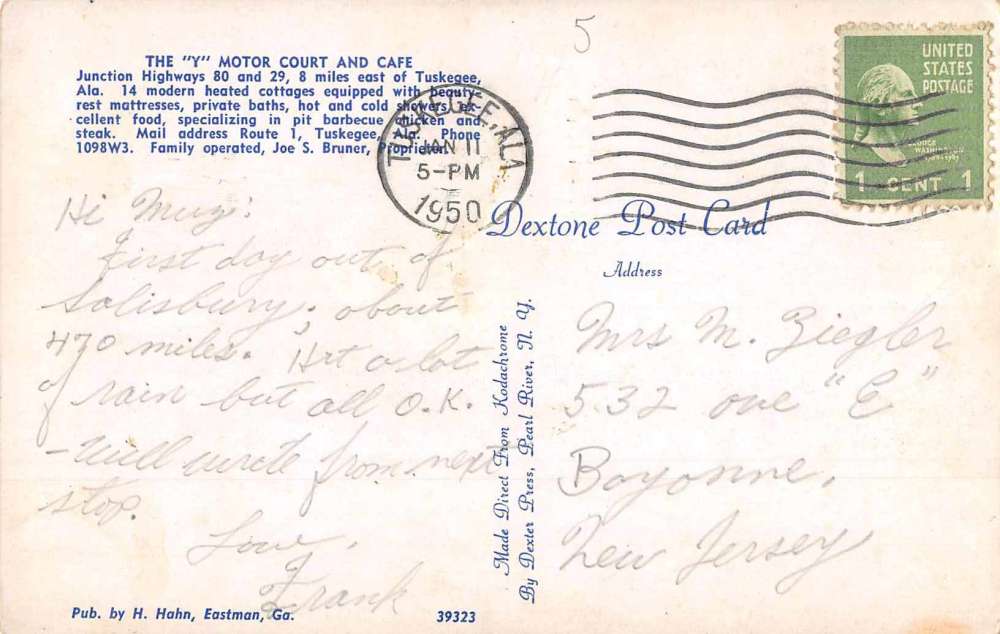 5
THE "Y" MOTOR COURT AND CAFE
Junction Highways 80 and 29, 8 miles east of Tuskegee,
Ala. 14 modern heated cottages equipped with beauty-
rest mattresses, private baths, hot and cold showers, ex-
cellent food, specializing in pit barbecue chicken and
steak. Mail address Route 1, Tuskegee, Ala. Phone
1098W3. Family operated, Joe S. Bruner, Proprietor.
TUSKEGEE, ALA.
JAN 11
5-PM
1950
UNITED
STATES
POSTAGE
GEORGE
WASHINGTON
1 CENT 1
Dextone Post Card
Address
Hi Murz:
First day out of
Salisbury. about
470 miles. Hit a lot
of rain but all O.K.
-Will write from next
stop.
Love,
Frank
Made Direct From Kodachrome
By Dexter Press, Pearl River, N. Y.
Mrs M. Ziegler
532 ave "E"
Bayonne,
New Jersey
Pub. by H. Hahn, Eastman, Ga.
39323